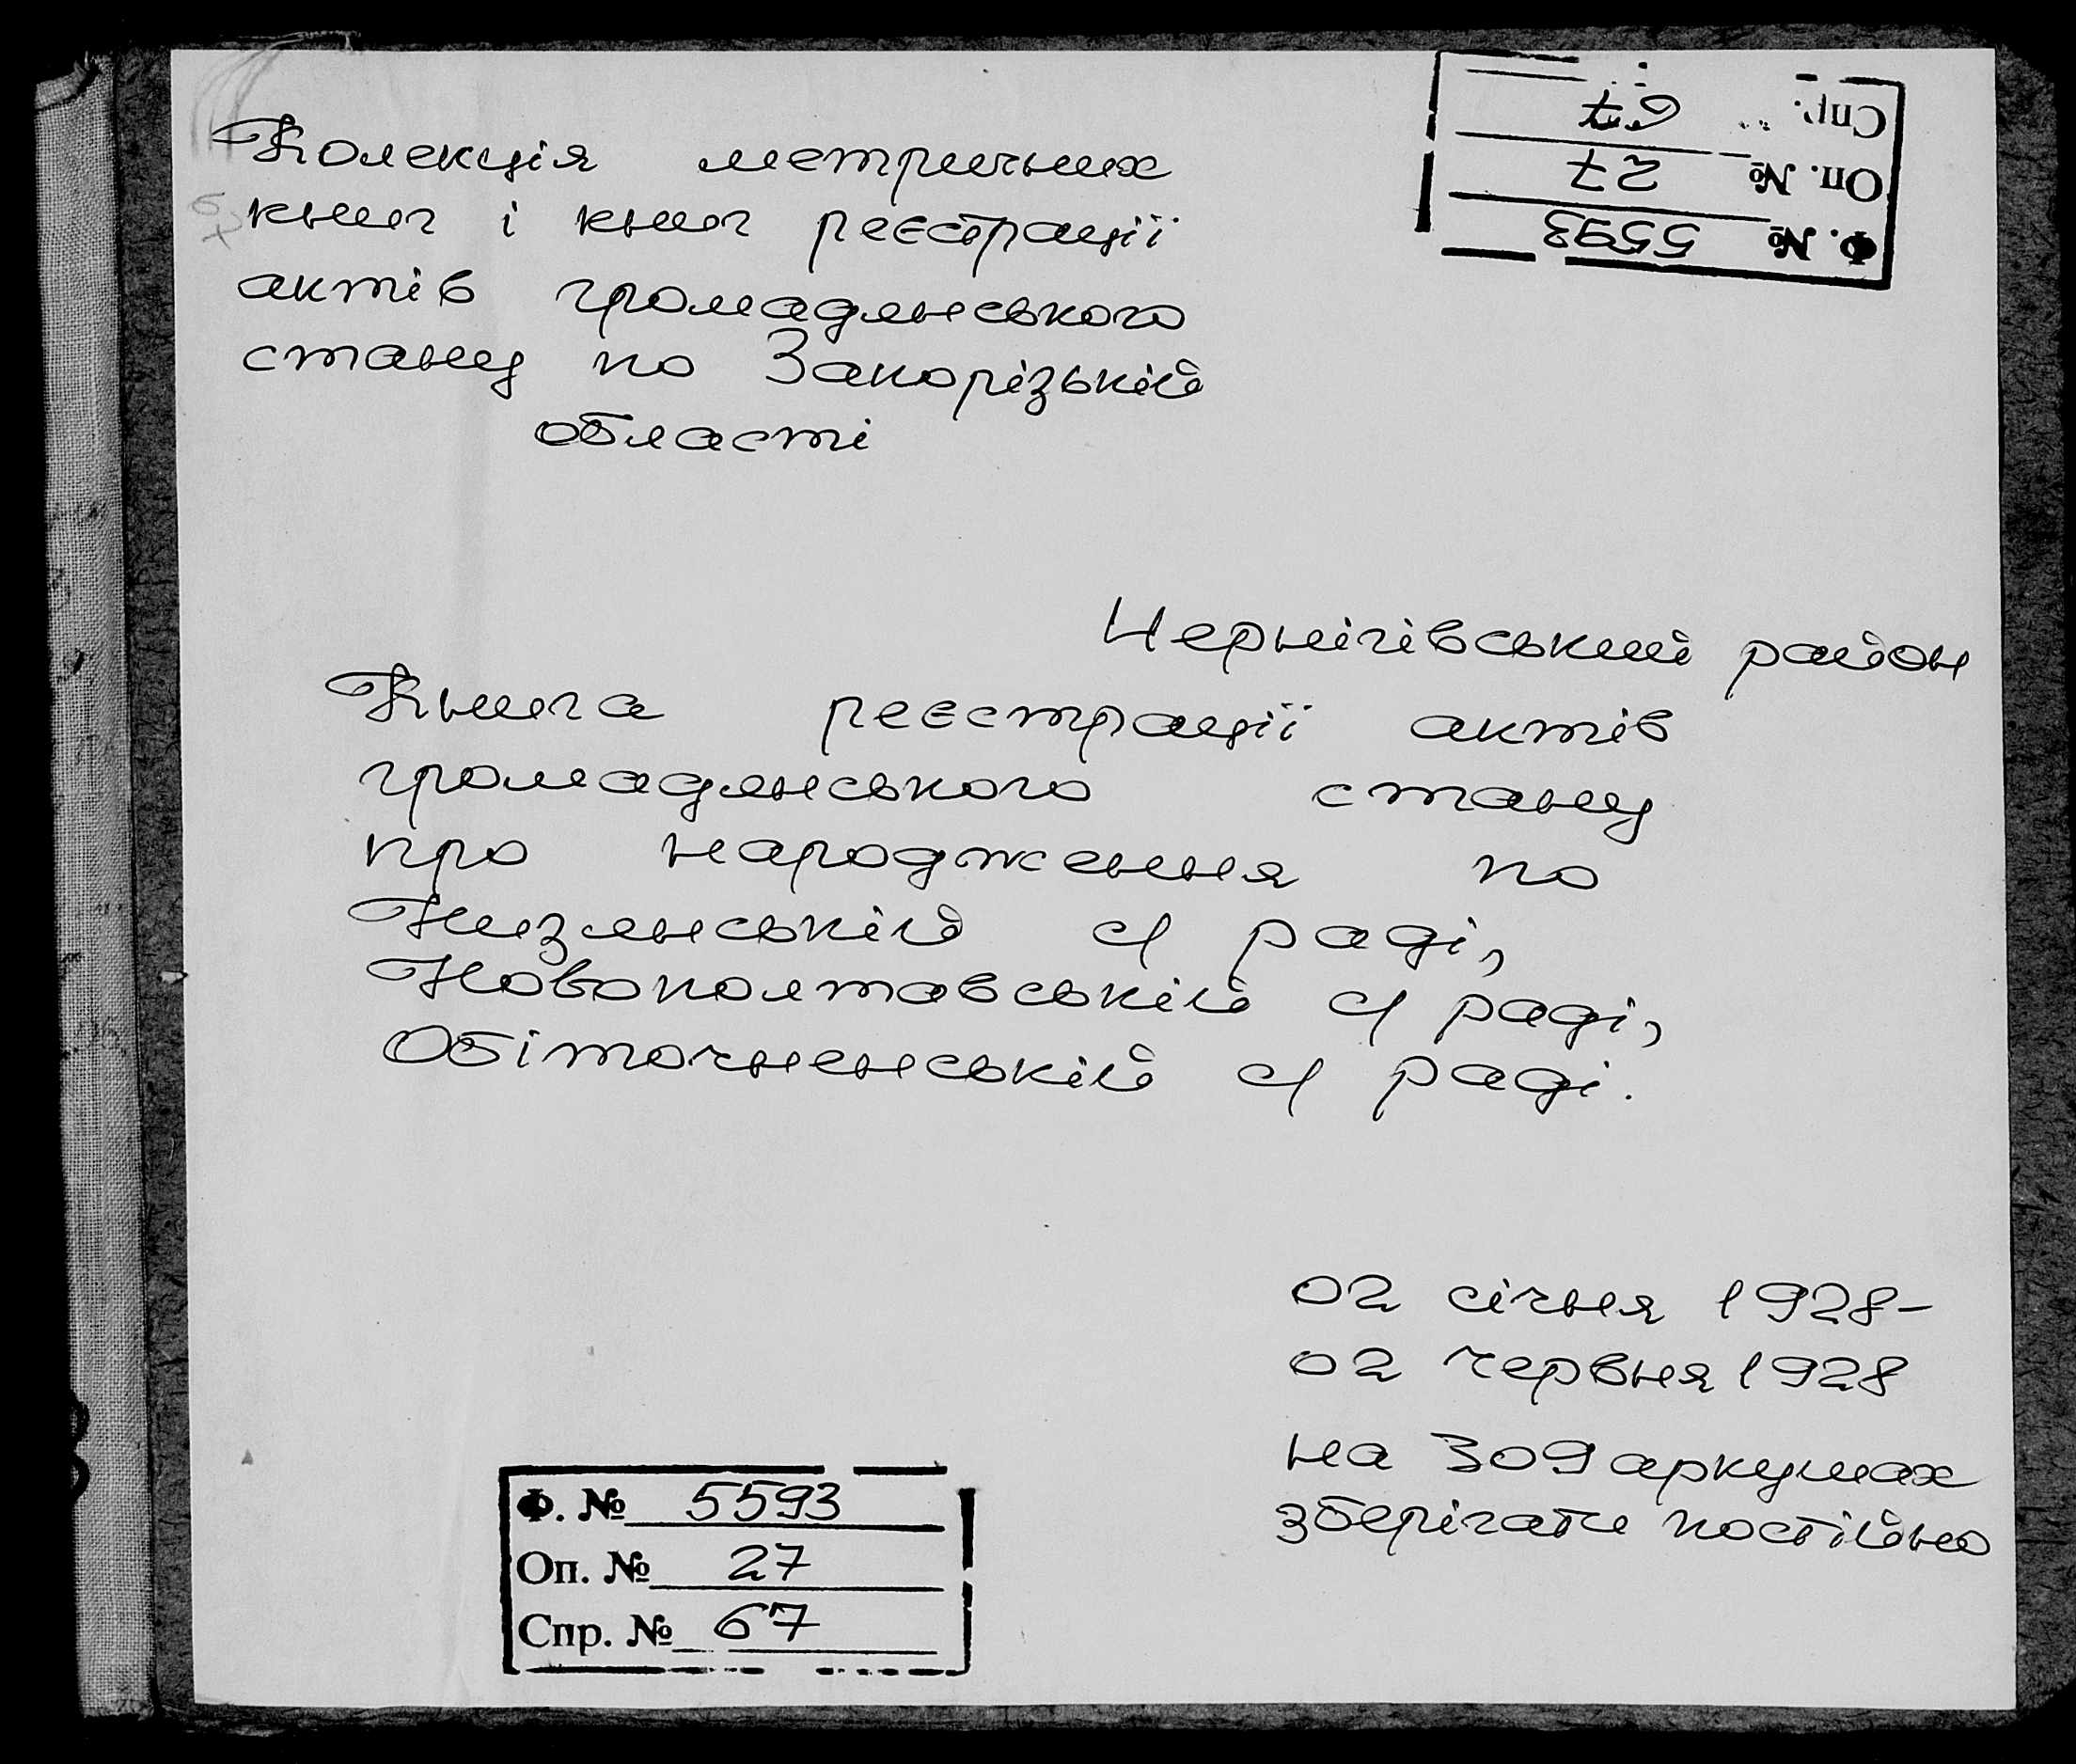 Колекція метричних
книг і книг реєстрації
актів громадянського
стану по Запорізькій
області
Ф. № 5593
Оп. № 27
Спр. 67
Чернігівський район
Книга реєстрації актів
громадянського стану
про народження по
Низянській с/ раді,
Новополтавській с/ раді,
Обіточненській с/ раді.
02 січня 1928-
02 червня 1928
на 309 аркушах
зберігати постійно
Ф. № 5593
Оп. № 27
Спр. № 67